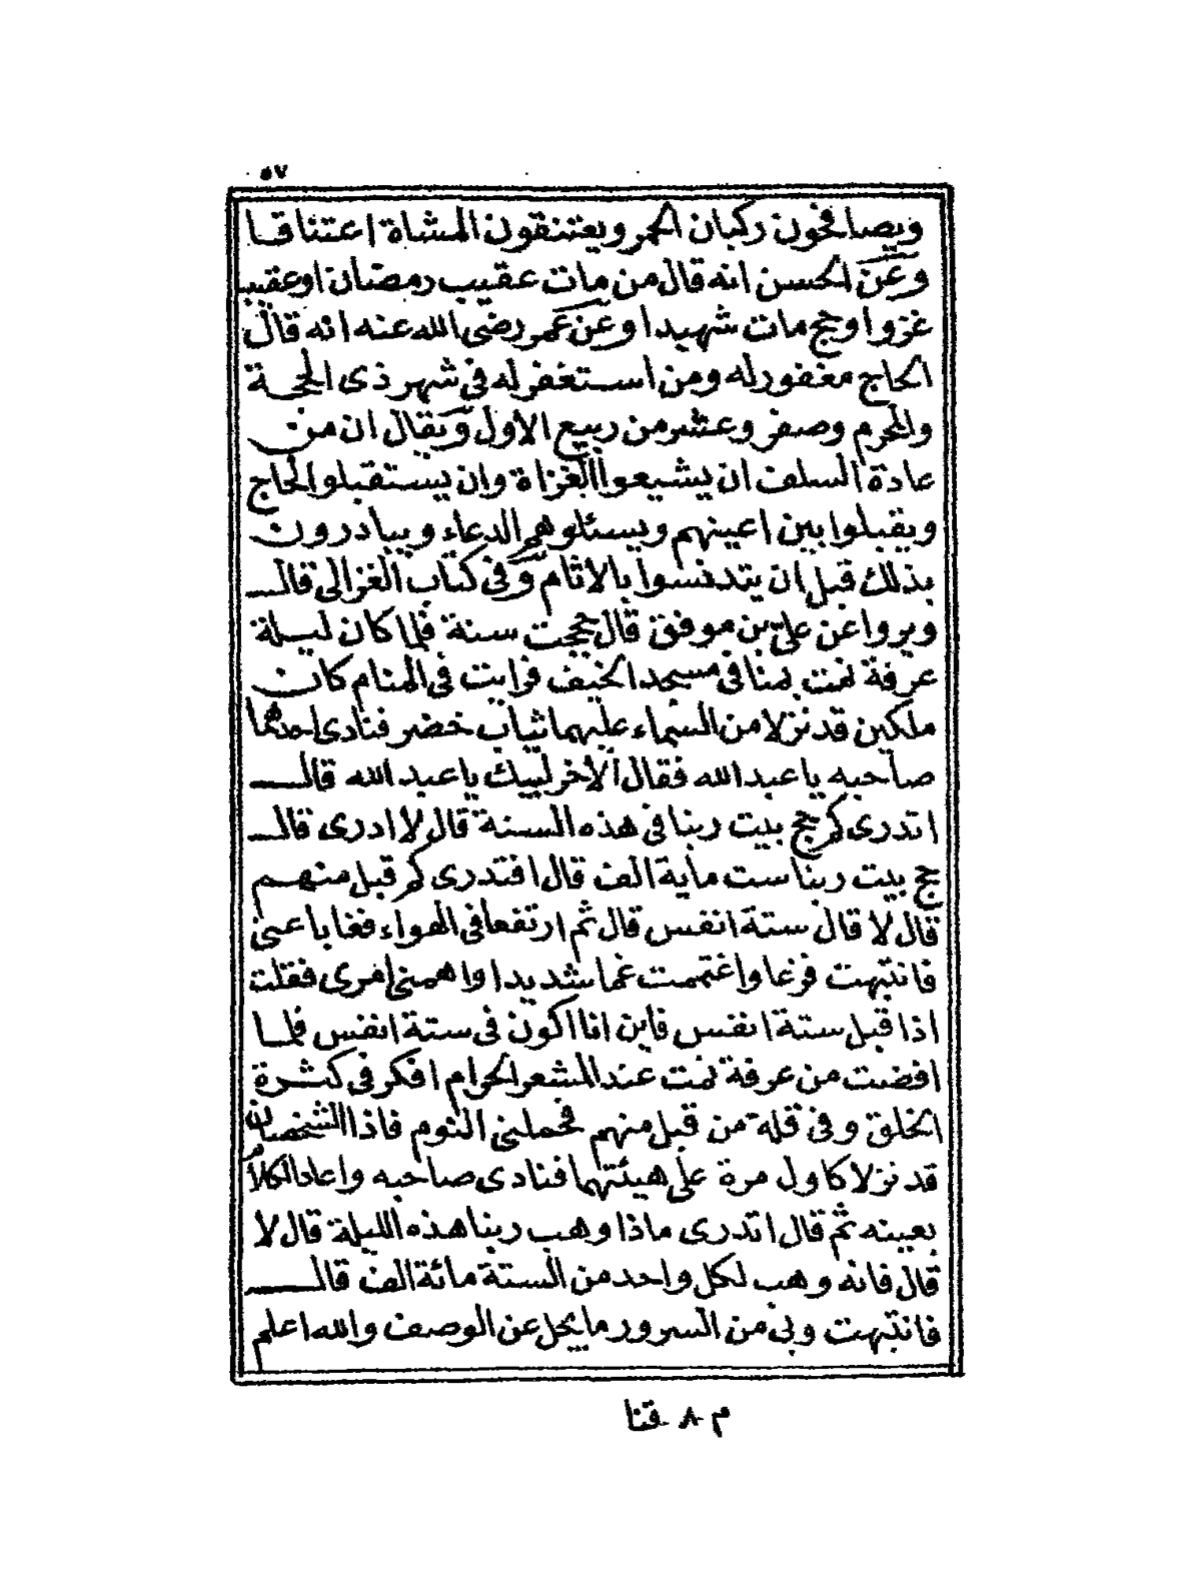 ٥٧
ويصافحون ركبان الحمر ويعتنقون المشاة اعتناقا
وعن الحسن انه قال من مات عقيب رمضان او عقيب
غزوا وحج مات شهيدا وعن عمر رضى الله عنه انه قال
الحاج مغفور له ومن استغفر له فى شهر ذى الحجة
والمحرم وصفر وعشر من ربيع الاول ويقال ان من
عادة السلف ان يشيعوا الغزاة وان يستقبلوا الحاج
ويقبلوا بين اعينهم ويسئلوهم الدعاء ويبادرون
بذلك قبل ان يتدنسوا بالاثام وفى كتاب الغزالى قال
ويروا عن على بن موفق قال حججت سنة فلما كان ليلة
عرفة نمت بمنا فى مسجد الخيف فرايت فى المنام كان
ملكين قد نزلا من السماء عليهما ثياب خضر فنادى احدهما
صاحبه يا عبد الله فقال الاخر لبيك يا عبد الله قال
اتدرى كم حج بيت ربنا فى هذه السنة قال لا ادرى قال
حج بيت ربنا ست ماية الف قال افتدرى كم قبل منهم
قال لا قال ستة انفس قال ثم ارتفعا فى الهواء فغابا عنى
فانتبهت فزعا واغتممت غما شديدا واهمنى امرى فقلت
اذا قبل ستة انفس فاين انا اكون فى ستة انفس فلما
افضت من عرفة نمت عند المشعر الحرام افكر فى كثرة
الخلق وفى قلة من قبل منهم فحملنى النوم فاذا الشخصان
قد نزلا كاول مرة على هيئتهما فنادى صاحبه واعاد الكلام
بعينه ثم قال اتدرى ماذا وهب ربنا هذه الليلة قال لا
قال فانه وهب لكل واحد من الستة مائة الف قال
فانتبهت وبى من السرور ما يجل عن الوصف والله اعلم
م ٨ قنا